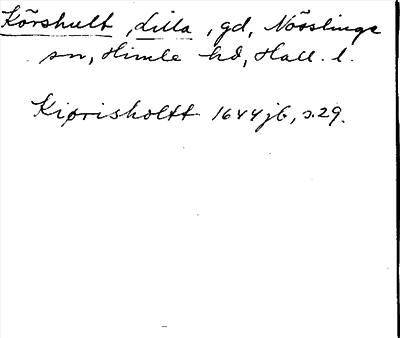 Körshult, Lilla, gd, Nösslinge
sn, Himle hd, Hall. l.
Kiörisholtt 1644 jb, s.29.